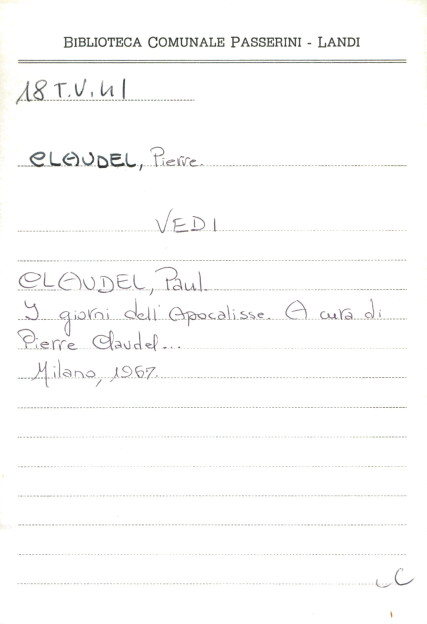 BIBLIOTECA COMUNALE PASSERINI - LANDI
18 T.V.41
CLAUDEL, Pierre.
VEDI
CLAUDEL, Paul.
I giorni dell'Apocalisse. A cura di
Pierre Claudel...
Milano, 1967.